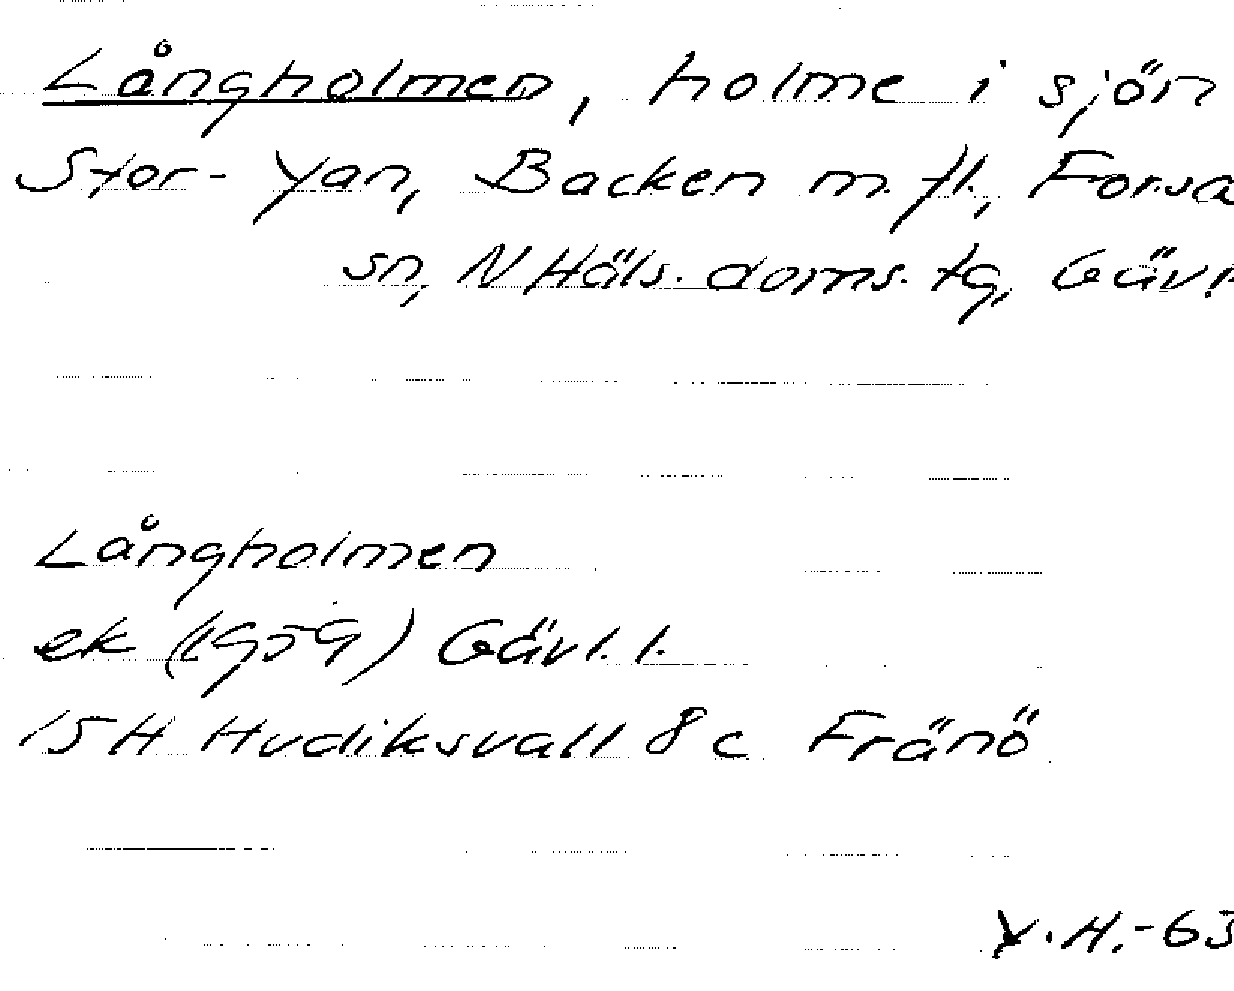 Långholmen, holme i sjön
Stor-Yan, Backen m.fl., Forsa
sn, N Häls. doms. tg, Gävl
Långholmen
ek (1959) Gävl. l.
15H Hudiksvall 8 c Fränö
Y.H.-63